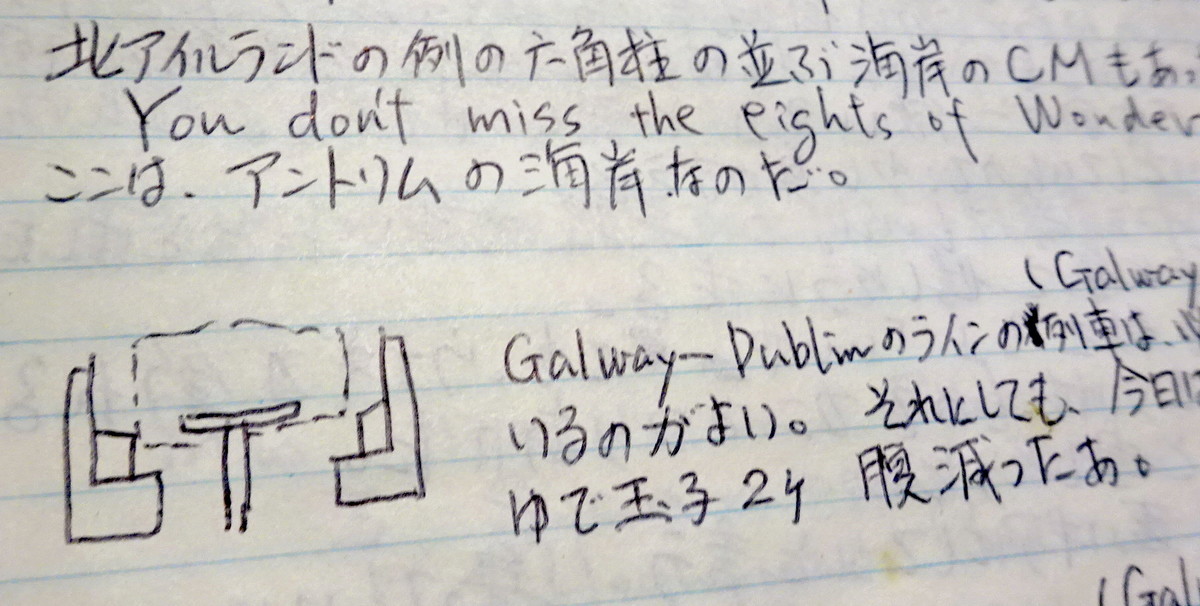 北アイルランドの例の六角柱の並ぶ海岸のCMもあっ
You don't miss the eights of Wonder
ここは、アントリムの海岸なのだ。
(Galway
Galway-Dublinのラインの列車は、
いるのがよい。それにしても、今日は
ゆで玉子2ケ 腹減ったあ。
(Gal